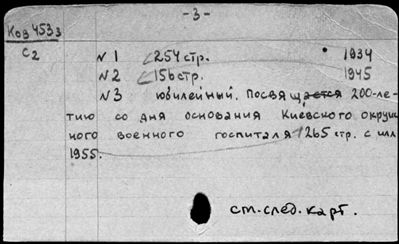 -3-
Коз 4533
С2 №1 254 стр. 1934
№2 156 стр. 1945
№3 юбилейный. Посвящается 200-ле-
тию со дня основания Киевского окруж
ного военного госпиталя 265 стр. с илл
1955.
см. след. карт.